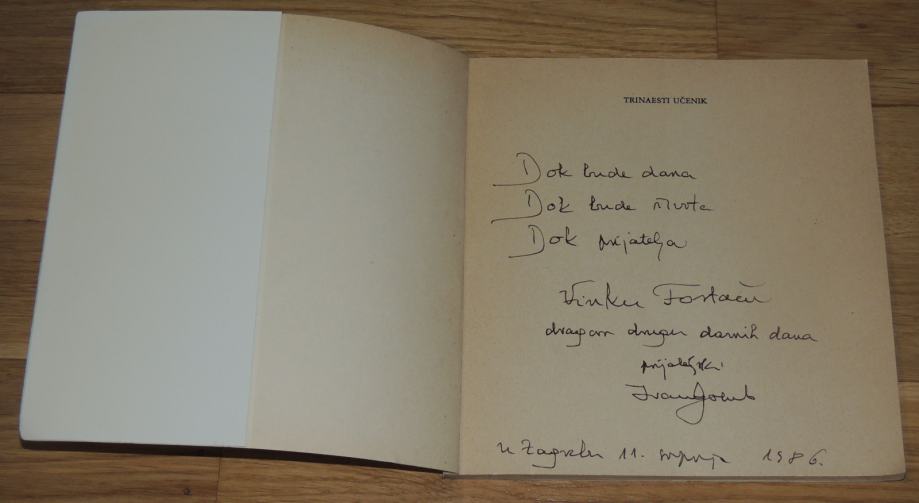 TRINAESTI UČENIK
Dok bude dana
Dok bude života
Dok prijatelja
Vinku Fostaču
dragom drugu davnih dana
prijateljski
Ivan Golub
u Zagrebu 11. srpnja 1986.